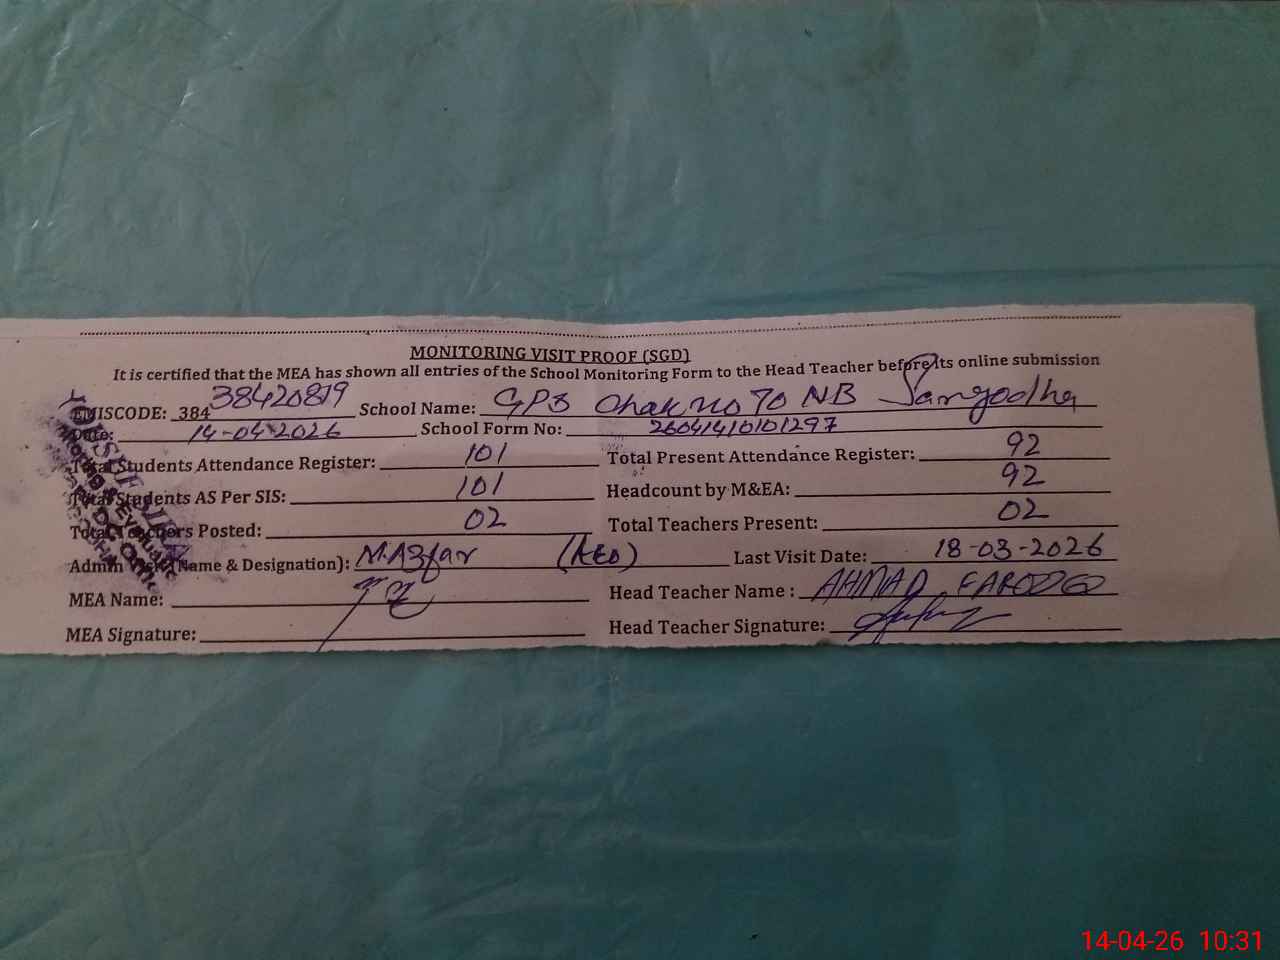 MONITORING VISIT PROOF (SGD)
It is certified that the MEA has shown all entries of the School Monitoring Form to the Head Teacher before its online submission
EMISCODE: 384 38420819 School Name: GPS Chak no 70 NB Sargodha
Date: 14-04-2026 School Form No: 26041410101297
Total Students Attendance Register: 101 Total Present Attendance Register: 92
Total Students AS Per SIS: 101 Headcount by M&EA: 92
Total Teachers Posted: 02 Total Teachers Present: 02
Admin Visit (Name & Designation): M.Azfar (AEO) Last Visit Date: 18-03-2026
MEA Name: Head Teacher Name : AHMAD FAROOQ
MEA Signature: Head Teacher Signature:
14-04-26 10:31